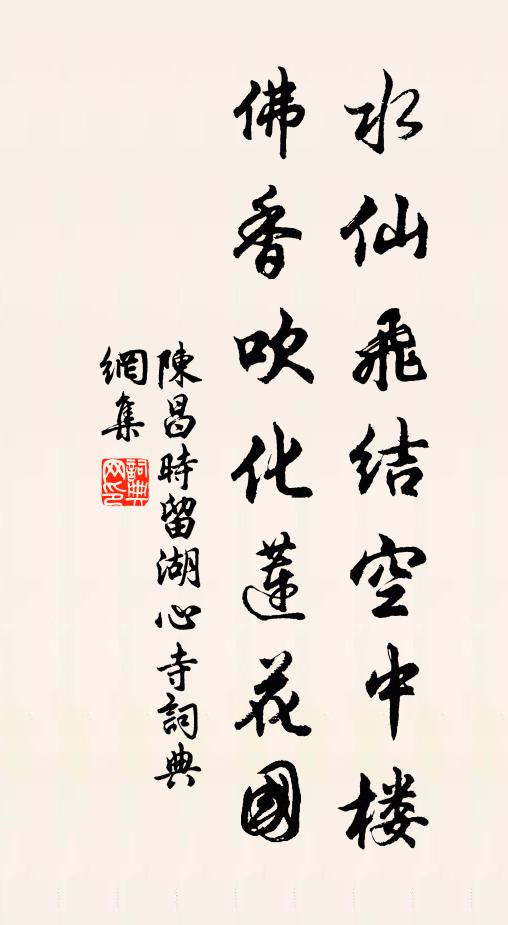 水仙飛结空中楼
佛香吹化蓮花國
陳昌時留湖心寺詞典
網集
詞典
网印